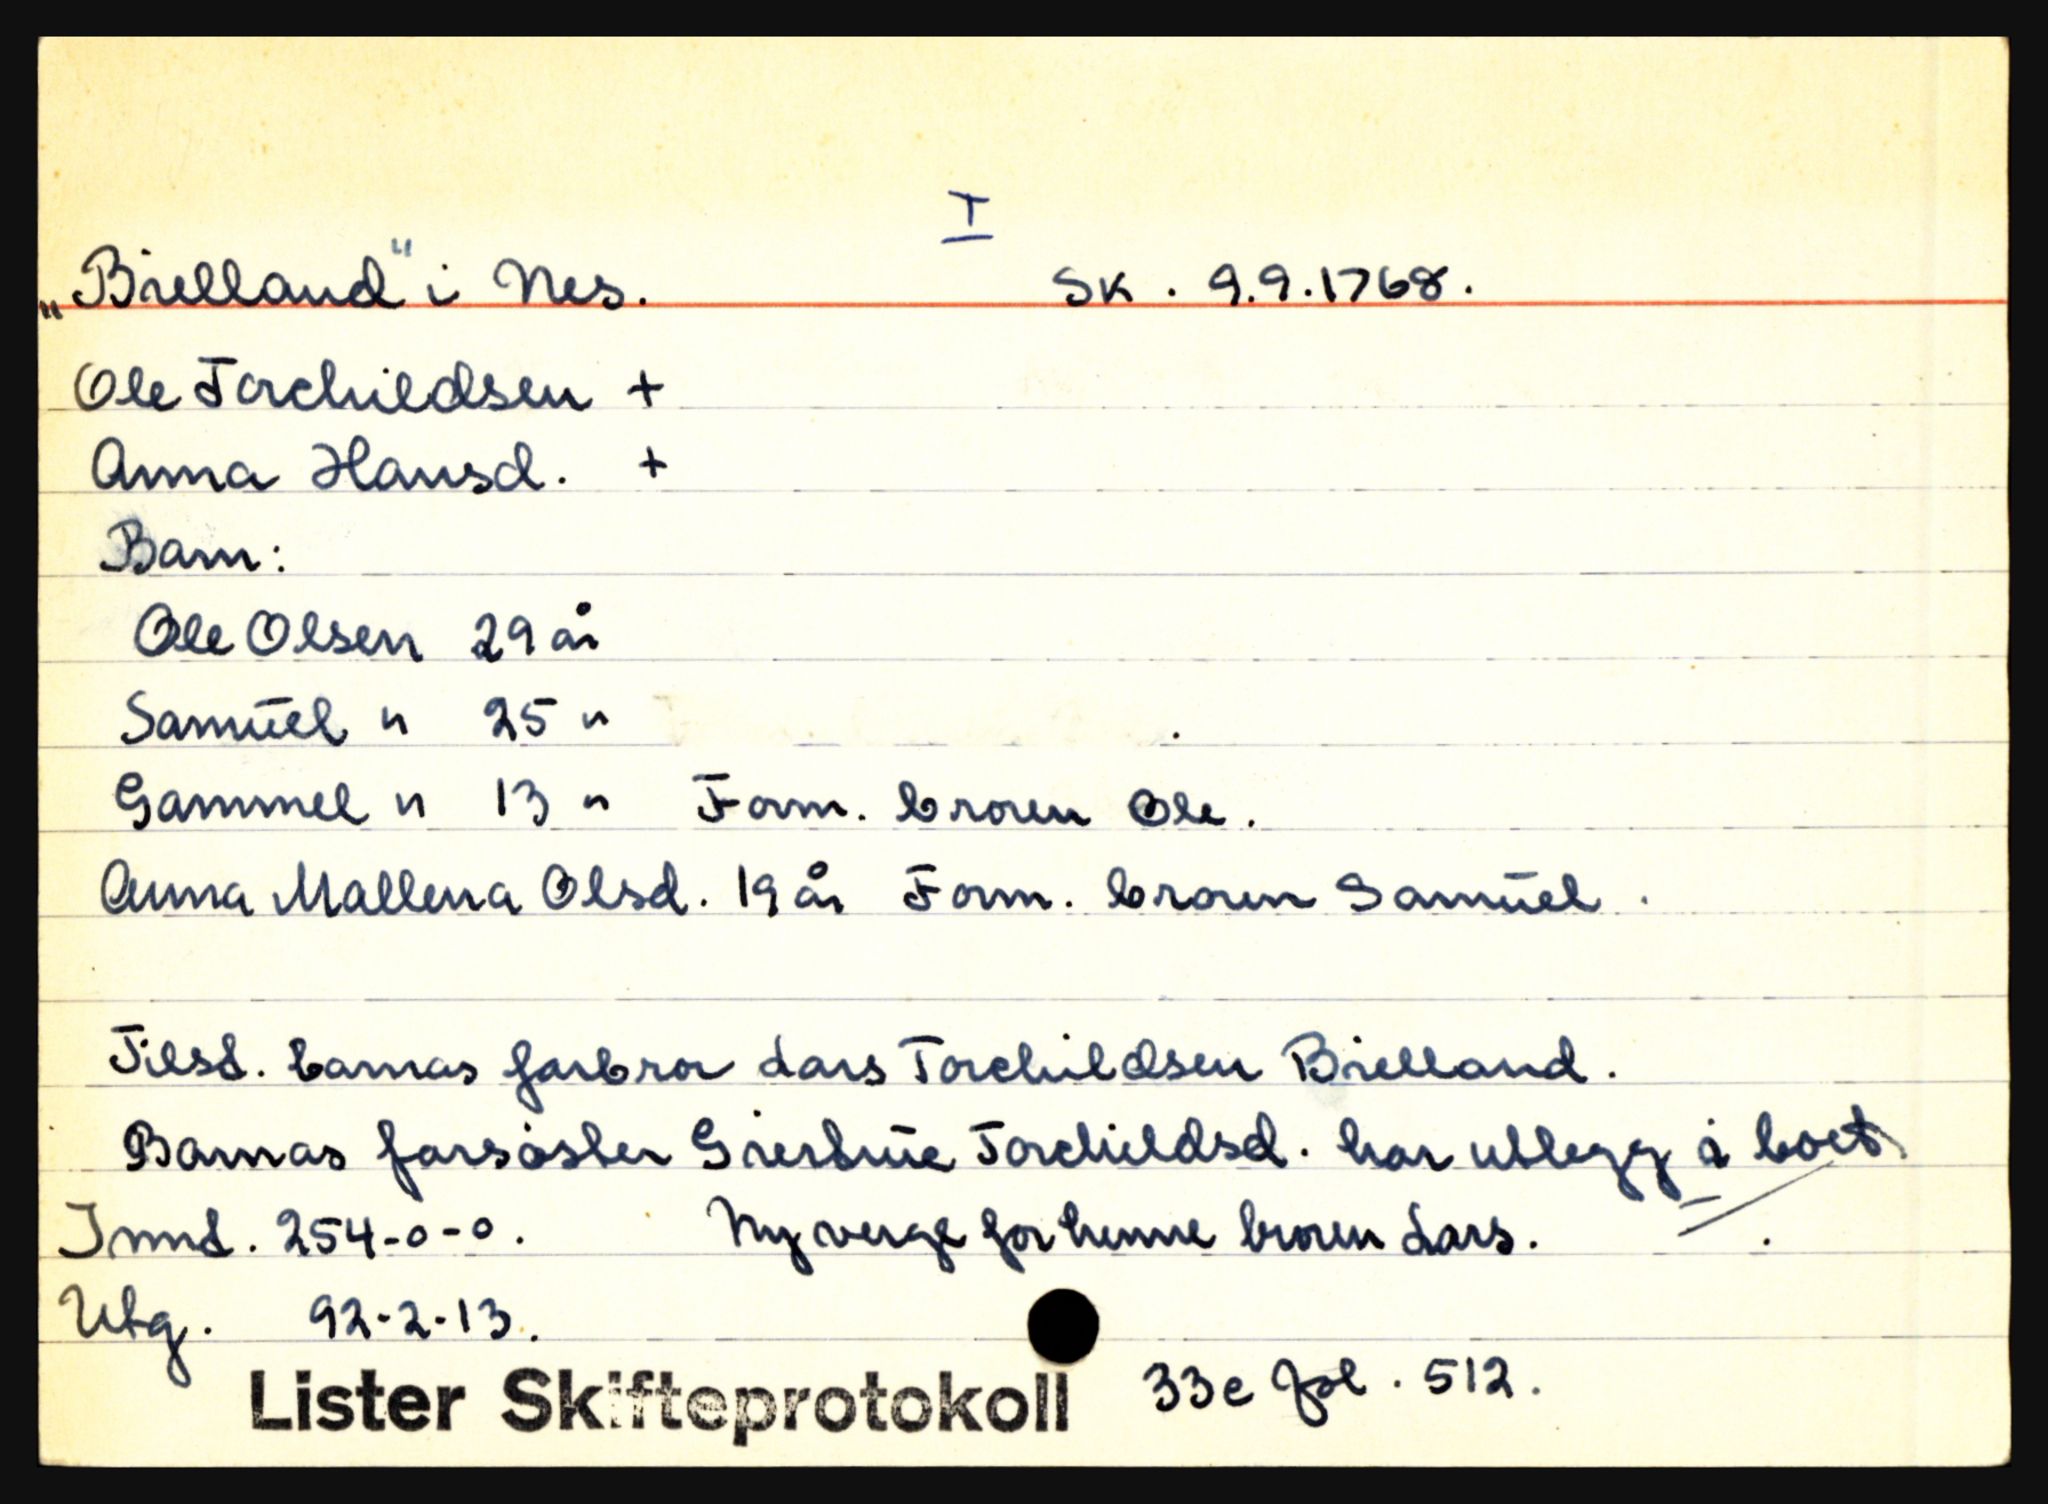 I
„Birelland" i Nes. SK. 9.9.1768.
Ole Torchildsen +
Anna Hansd. +
Barn:
Ole Olsen 29 år
Samuel " 25 "
Gammel " 13 " Form. broren Ole.
Anna Mallena Olsd. 19 år Form. broren Samuel.
Tilsd. barnas farbror Lars Torchildsen Birelland.
Barnas farsøster Torchildsd. har utlegg i boet.
Innd. 254-0-0. Ny verge for henne broren Lars.
Utg. 92-2-13.
Lister Skifteprotokoll 33c fol. 512.